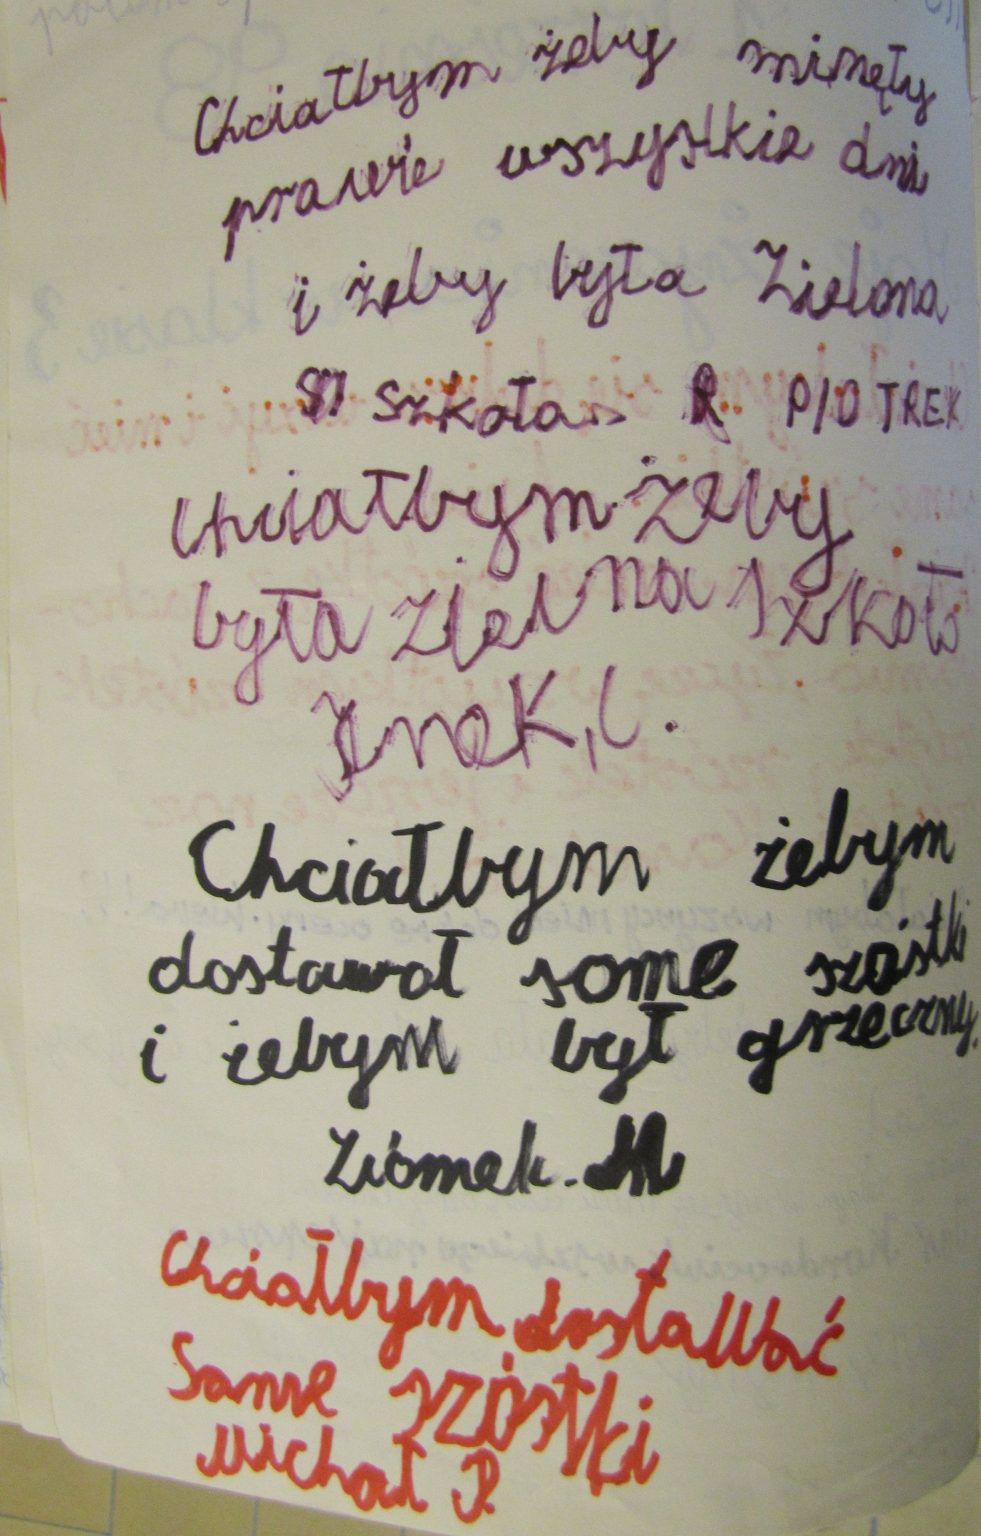 Chciałbym żeby minęły
prawie wszystkie dni
i żeby była Zielona
szkoła R PIOTREK
chciałbym żeby
była zielna szkoł
Chciałbym żebym
dostawał same szóstki
i żebym był grzeczny.
Ziomek. M
Chciałbym dostawać
Same szóstki
Michał P.